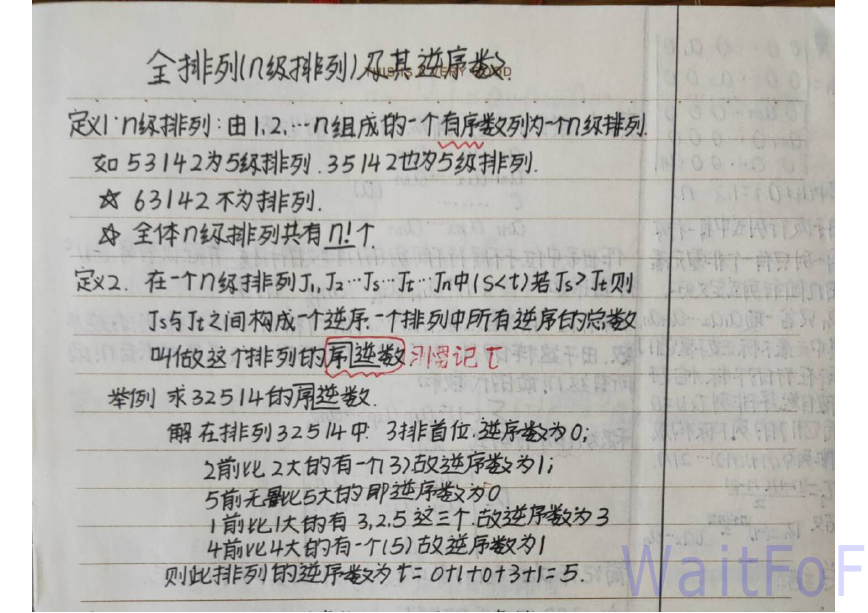 全排列(n级排列)及其逆序数.
定义1:n级排列:由1,2,…n组成的一个有序数列为一个n级排列.
如53142为5级排列.35142也为5级排列.
☆ 63142不为排列.
☆ 全体n级排列共有n!个.
定义2. 在一个n级排列J1,J2…Js…Jt…Jn中(s<t)若Js>Jt则
Js与Jt之间构成一个逆序.一个排列中所有逆序的总数
叫做这个排列的序逆数 习惯记τ
举例 求32514的序逆数.
解 在排列32514中. 3排首位.逆序数为0;
2前比2大的有一个(3)故逆序数为1;
5前无比5大的即逆序数为0
1前比1大的有3,2.5这三个.故逆序数为3
4前比4大的有一个(5)故逆序数为1
则此排列的逆序数为t=0+1+0+3+1=5.
WaitFoF